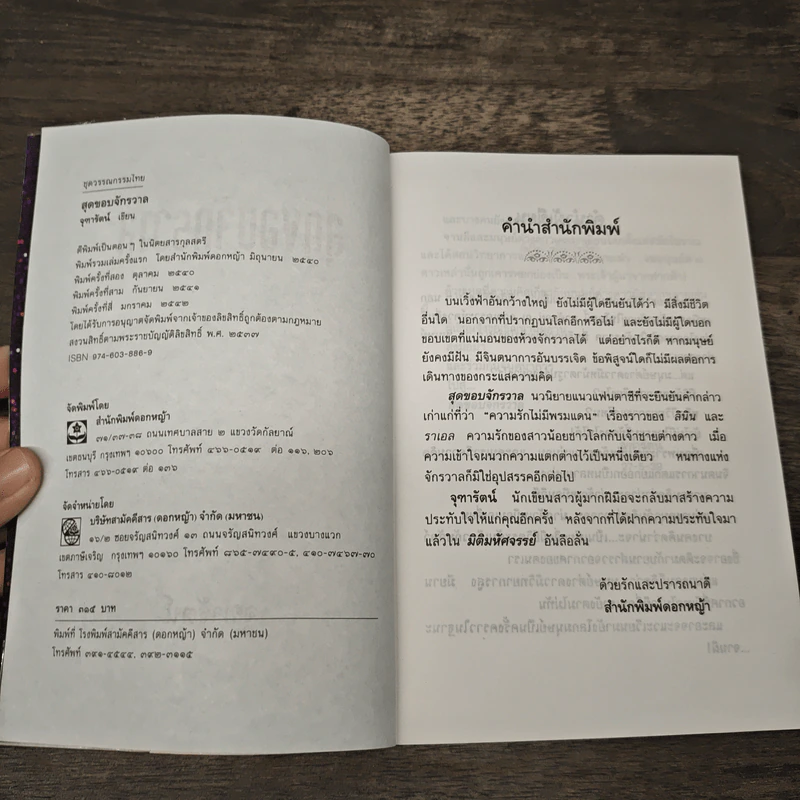 ชุดวรรณกรรมไทย
สุดขอบจักรวาล
จุฑารัตน์ เขียน
ตีพิมพ์เป็นตอนๆ ในนิตยสารกุลสตรี
พิมพ์รวมเล่มครั้งแรก โดยสำนักพิมพ์ดอกหญ้า มิถุนายน ๒๕๔๐
พิมพ์ครั้งที่สอง ตุลาคม ๒๕๔๐
พิมพ์ครั้งที่สาม กันยายน ๒๕๔๑
พิมพ์ครั้งที่สี่ มกราคม ๒๕๔๒
โดยได้รับการอนุญาตจัดพิมพ์จากเจ้าของลิขสิทธิ์ถูกต้องตามกฎหมาย
สงวนลิขสิทธิ์ตามพระราชบัญญัติลิขสิทธิ์ พ.ศ. ๒๕๓๗
ISBN 974-603-886-9
จัดพิมพ์โดย
สำนักพิมพ์ดอกหญ้า
๗๑/๓๗-๓๘ ถนนเทศบาลสาย ๒ แขวงวัดกัลยาณ์
เขตธนบุรี กรุงเทพฯ ๑๐๖๐๐ โทรศัพท์ ๔๖๖-๐๕๑๙ ต่อ ๑๑๖, ๒๐๖
โทรสาร ๔๖๖-๐๕๑๙ ต่อ ๑๓๖
จัดจำหน่ายโดย
บริษัทสามัคคีสาร (ดอกหญ้า) จำกัด (มหาชน)
๑๖/๒ ซอยจรัญสนิทวงศ์ ๑๓ ถนนจรัญสนิทวงศ์ แขวงบางแวก
เขตภาษีเจริญ กรุงเทพฯ ๑๐๑๖๐ โทรศัพท์ ๘๖๕-๗๔๙๐-๕, ๔๑๐-๗๔๖๗-๗๐
โทรสาร ๔๑๐-๘๐๑๒
ราคา ๓๑๕ บาท
พิมพ์ที่ โรงพิมพ์สามัคคีสาร (ดอกหญ้า) จำกัด (มหาชน)
โทรศัพท์ ๓๙๑-๔๕๔๔, ๓๙๒-๓๑๑๕
คำนำสำนักพิมพ์
บนเวิ้งฟ้าอันกว้างใหญ่ ยังไม่มีผู้ใดยืนยันได้ว่า มีสิ่งมีชีวิต
อื่นใด นอกจากที่ปรากฏบนโลกอีกหรือไม่ และยังไม่มีผู้ใดบอก
ขอบเขตที่แน่นอนของห้วงจักรวาลได้ แต่อย่างไรก็ดี หากมนุษย์
ยังคงมีฝัน มีจินตนาการอันบรรเจิด ข้อพิสูจน์ใดก็ไม่มีผลต่อการ
เดินทางของกระแสความคิด
สุดขอบจักรวาล นวนิยายแนวแฟนตาซีที่จะยืนยันคำกล่าว
เก่าแก่ที่ว่า "ความรักไม่มีพรมแดน" เรื่องราวของ ลินิน และ
ราเอล ความรักของสาวน้อยชาวโลกกับเจ้าชายต่างดาว เมื่อ
ความเข้าใจผนวกความแตกต่างไว้เป็นหนึ่งเดียว หนทางแห่ง
จักรวาลก็มิใช่อุปสรรคอีกต่อไป
จุฑารัตน์ นักเขียนสาวผู้มากฝีมือจะกลับมาสร้างความ
ประทับใจให้แก่คุณอีกครั้ง หลังจากที่ได้ฝากความประทับใจมา
แล้วใน มิติมหัศจรรย์ อันลือลั่น
ด้วยรักและปรารถนาดี
สำนักพิมพ์ดอกหญ้า